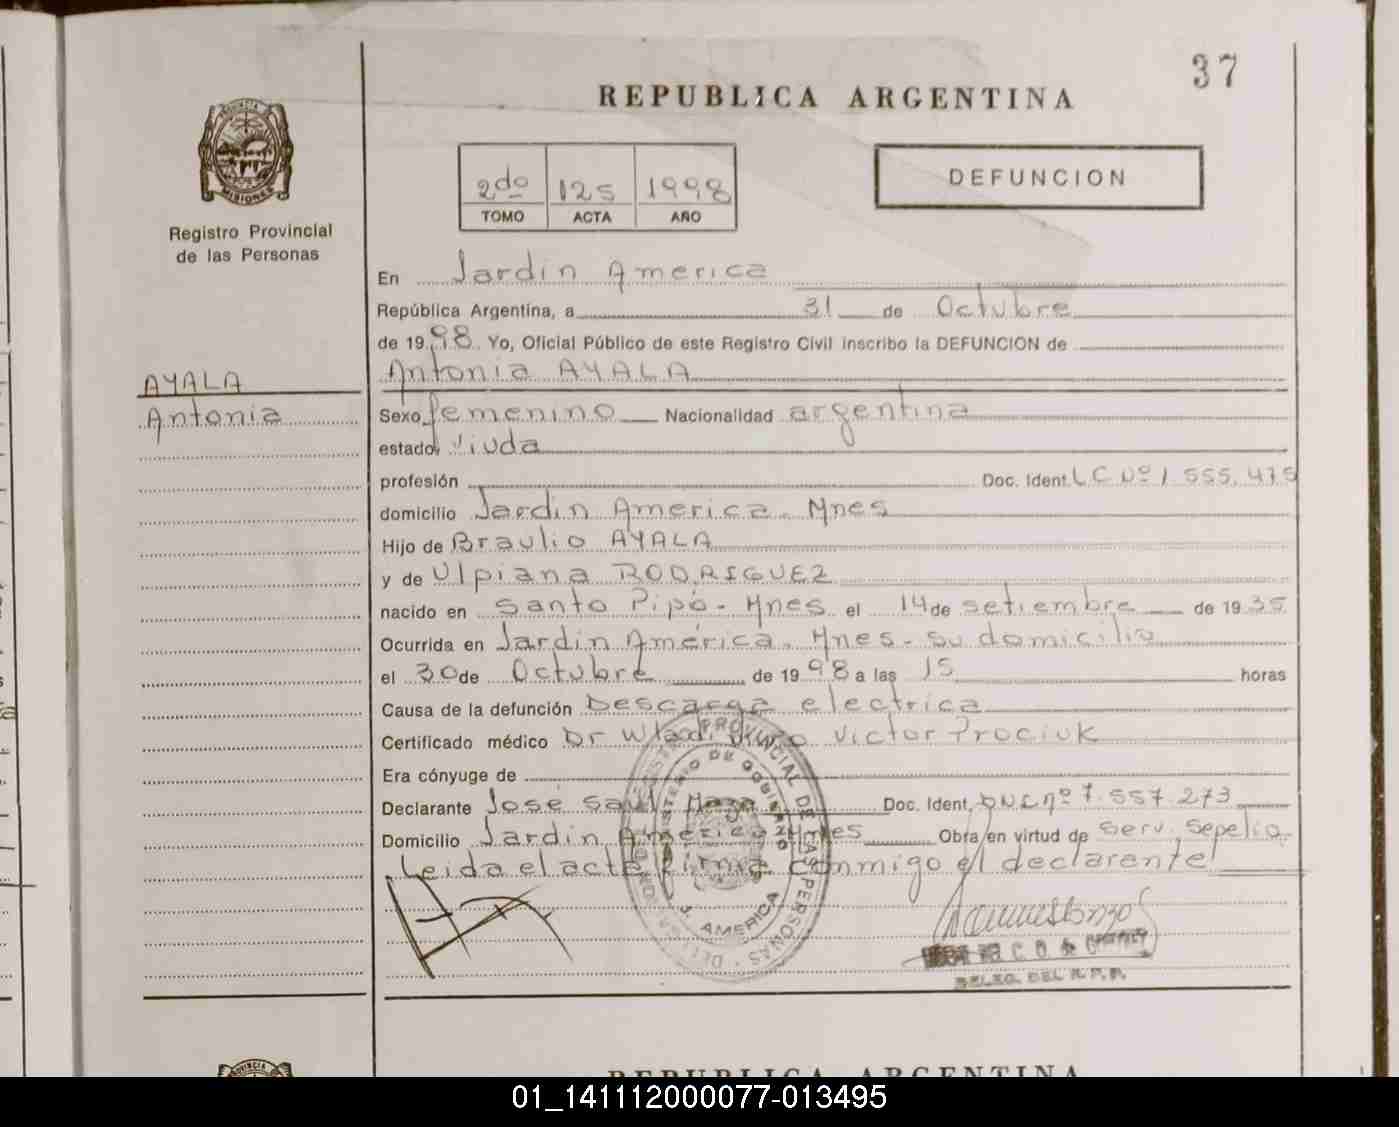 37
REPUBLICA ARGENTINA
PROVINCIA
MISIONES
Registro Provincial
de las Personas
2do 125 1998
TOMO ACTA AÑO
DEFUNCION
En Jardin America
República Argentina, a 31 de Octubre
de 1998 Yo, Oficial Público de este Registro Civil inscribo la DEFUNCION de
Antonia AYALA
AYALA
Antonia
Sexo femenino Nacionalidad argentina
estado viuda
profesión Doc. Ident. L C Nº 1.555.475
domicilio Jardin America. Mnes
Hijo de Braulio AYALA
y de Ulpiana RODRIGUEZ
nacido en Santo Pipó - Mnes el 14 de setiembre de 1935
Ocurrida en Jardin América. Mnes - su domicilio
el 30 de Octubre de 1998 a las 15 horas
Causa de la defunción Descarga electrica
Certificado médico Dr Victor Prociuk
Era cónyuge de
Declarante José Saul Doc. Ident. DNI nº 7.557.273
Domicilio Jardin America Mnes Obra en virtud de serv. sepelio
Leida el acta firma conmigo el declarante
PROVINCIAL DE LAS PERSONAS
J. AMERICA
DELEG. DEL R.P.P.
PROVINCIA
REPUBLICA ARGENTINA
01_141112000077-013495